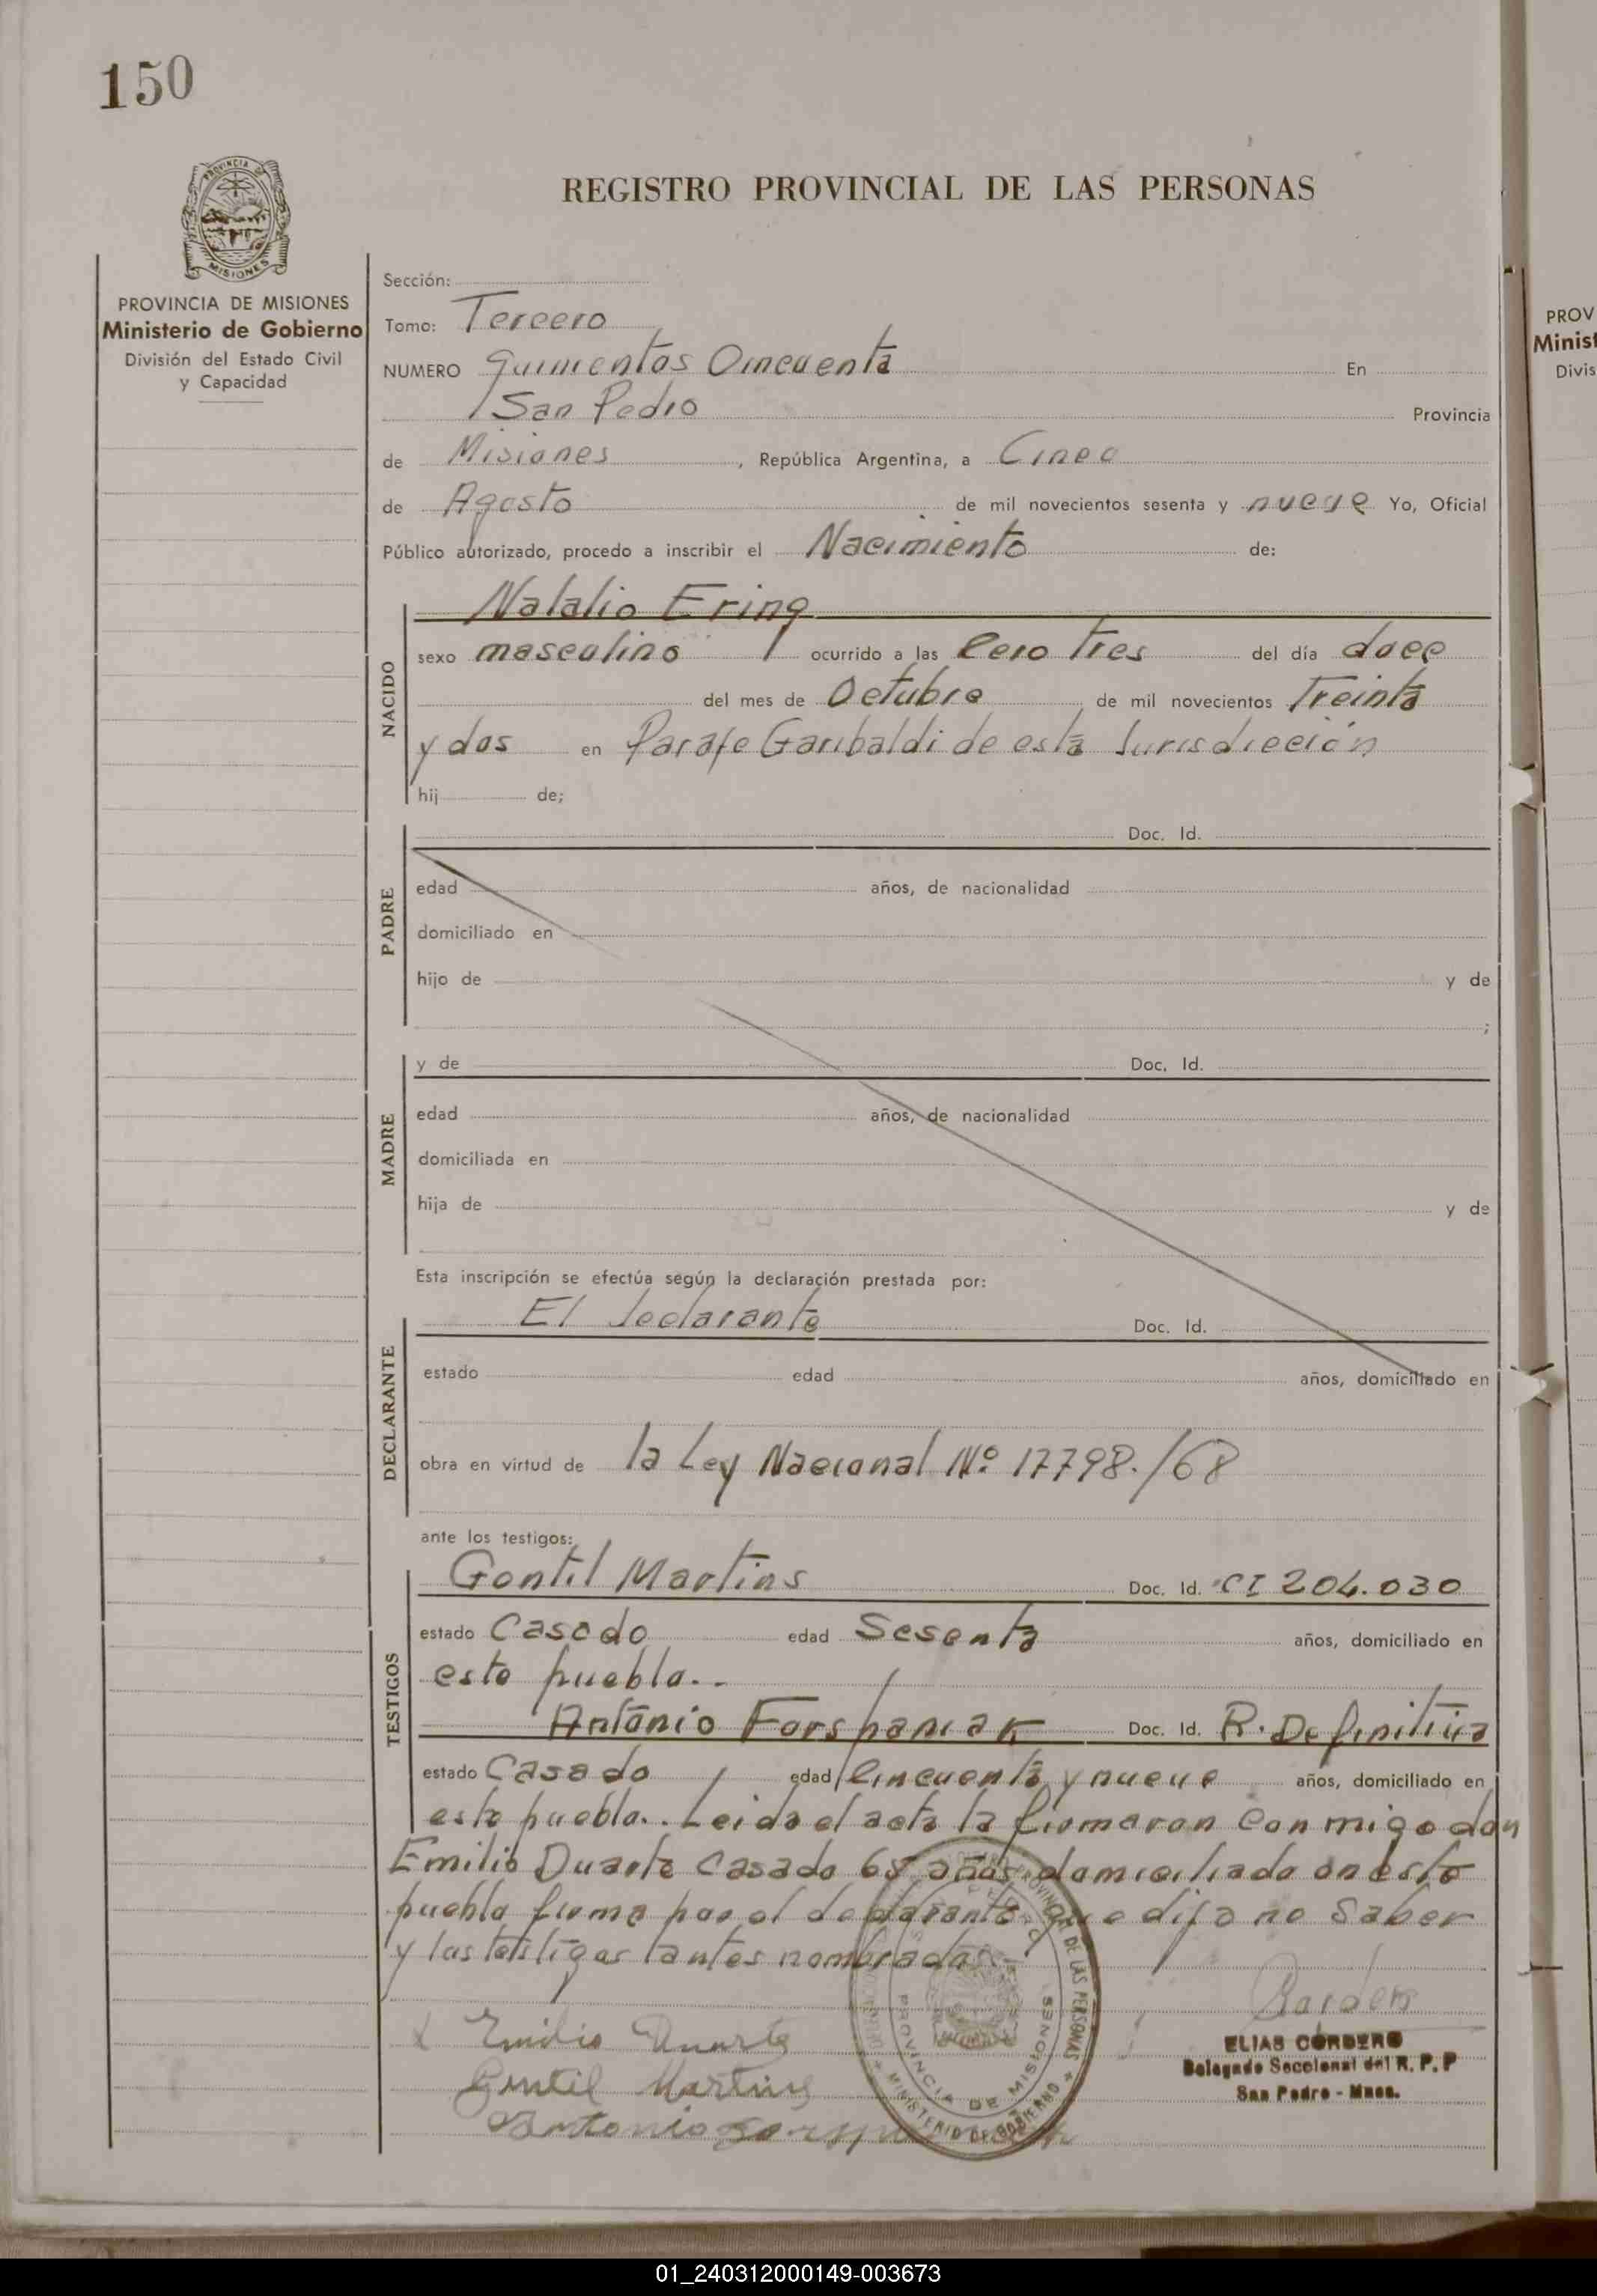 150
REGISTRO PROVINCIAL DE LAS PERSONAS
PROVINCIA
MISIONES
PROVINCIA DE MISIONES
Ministerio de Gobierno
División del Estado Civil
y Capacidad
Sección:
Tomo: Tercero
NUMERO quinientos Cincuenta En
San Pedro Provincia
de Misiones, República Argentina, a Cinco
de Agosto de mil novecientos sesenta y nueve Yo, Oficial
Público autorizado, procedo a inscribir el Nacimiento de:
NACIDO
Natalio Ering
sexo masculino ocurrido a las Cero Tres del día doce
del mes de Octubre de mil novecientos Treinta
y dos en Paraje Garibaldi de esta Jurisdicción
hij de;
PADRE
Doc. Id.
edad años, de nacionalidad
domiciliado en
hijo de y de
;
MADRE
y de Doc. Id.
edad años, de nacionalidad
domiciliada en
hija de y de
Esta inscripción se efectúa según la declaración prestada por:
DECLARANTE
El declarante Doc. Id.
estado edad años, domiciliado en
obra en virtud de la Ley Nacional Nº 17798./68
ante los testigos:
TESTIGOS
Gentil Martins Doc. Id. CI 204.030
estado Casado edad Sesenta años, domiciliado en
este pueblo..
Antonio Forspaniak Doc. Id. R. Definitiva
estado Casado edad Cincuenta y nueve años, domiciliado en
este pueblo.. Leida el acta la firmaron conmigo don
Emilio Duarte Casado 68 años domiciliado en este
pueblo firma por el declarante que dijo no Saber
y los testigos antes nombrados
Emilio Duarte
Gentil Martins
Antonio
PROVINCIA DE MISIONES
MINISTERIO DE GOBIERNO
DE LAS PERSONAS
ELIAS CORDERO
Delegado Seccional del R. P. P
San Pedro - Mnes.
PROV
Minist
Divis
01_240312000149-003673